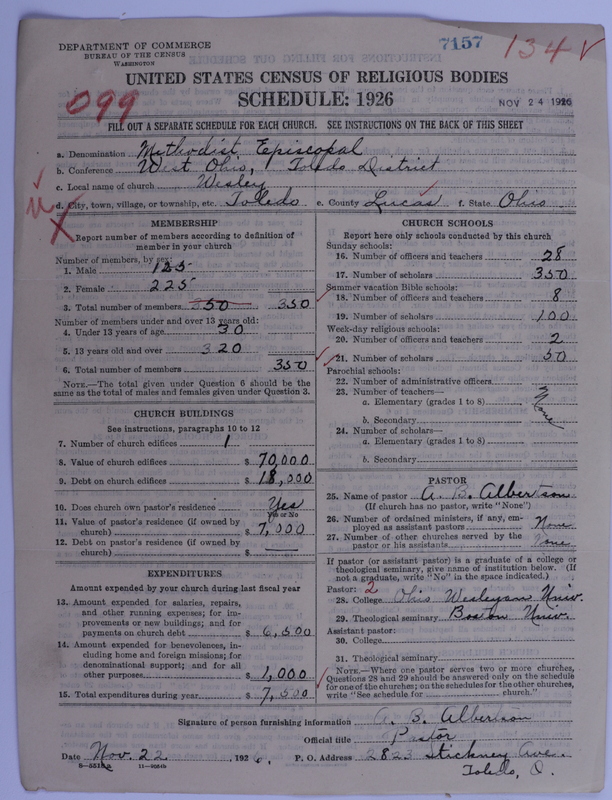 DEPARTMENT OF COMMERCE
BUREAU OF THE CENSUS
WASHINGTON
7157
134 ✓
UNITED STATES CENSUS OF RELIGIOUS BODIES
SCHEDULE: 1926
099
NOV 24 1926
FILL OUT A SEPARATE SCHEDULE FOR EACH CHURCH. SEE INSTRUCTIONS ON THE BACK OF THIS SHEET
a. Denomination Methodist Episcopal
b. Conference West Ohio, Toledo District
c. Local name of church Wesley
d. City, town, village, or township, etc. Toledo e. County Lucas f. State Ohio
MEMBERSHIP
Report number of members according to definition of
member in your church
Number of members, by sex:
1. Male 125
2. Female 225
3. Total number of members 350 350
Number of members under and over 13 years old:
4. Under 13 years of age 30
5. 13 years old and over 320
6. Total number of members 350
NOTE.—The total given under Question 6 should be the
same as the total of males and females given under Question 3.
CHURCH BUILDINGS
See instructions, paragraphs 10 to 12
7. Number of church edifices 1
8. Value of church edifices $ 70,000
9. Debt on church edifices $ 18,000
10. Does church own pastor's residence Yes
Yes or No
11. Value of pastor's residence (if owned by
church) $ 7,000
12. Debt on pastor's residence (if owned by
church) $ —
EXPENDITURES
Amount expended by your church during last fiscal year
13. Amount expended for salaries, repairs,
and other running expenses; for im-
provements or new buildings; and for
payments on church debt $ 6,500
14. Amount expended for benevolences, in-
cluding home and foreign missions; for
denominational support; and for all
other purposes $ 1,000
15. Total expenditures during year $ 7,500
CHURCH SCHOOLS
Report here only schools conducted by this church
Sunday schools:
16. Number of officers and teachers 28
17. Number of scholars 350
Summer vacation Bible schools:
18. Number of officers and teachers 8
19. Number of scholars 100
Week-day religious schools:
20. Number of officers and teachers 2
21. Number of scholars 50
Parochial schools:
22. Number of administrative officers
23. Number of teachers—
a. Elementary (grades 1 to 8)
b. Secondary
None
24. Number of scholars—
a. Elementary (grades 1 to 8)
b. Secondary
PASTOR
25. Name of pastor A. B. Albertson
(If church has no pastor, write "None")
26. Number of ordained ministers, if any, em-
ployed as assistant pastors None
27. Number of other churches served by the
pastor or his assistants None
If pastor (or assistant pastor) is a graduate of a college or
theological seminary, give name of institution below. (If
not a graduate, write "No" in the space indicated.)
Pastor: 2
28. College Ohio Wesleyan Univ.
29. Theological seminary Boston Univ.
Assistant pastor:
30. College
31. Theological seminary
NOTE.—Where one pastor serves two or more churches,
Questions 28 and 29 should be answered only on the schedule
for one of the churches; on the schedules for the other churches,
write "See schedule for church."
Signature of person furnishing information A. B. Albertson
Official title Pastor
Date Nov. 22, 1926. P. O. Address 2823 Stickney Ave.
Toledo, O.
8—5518a 11—9554b